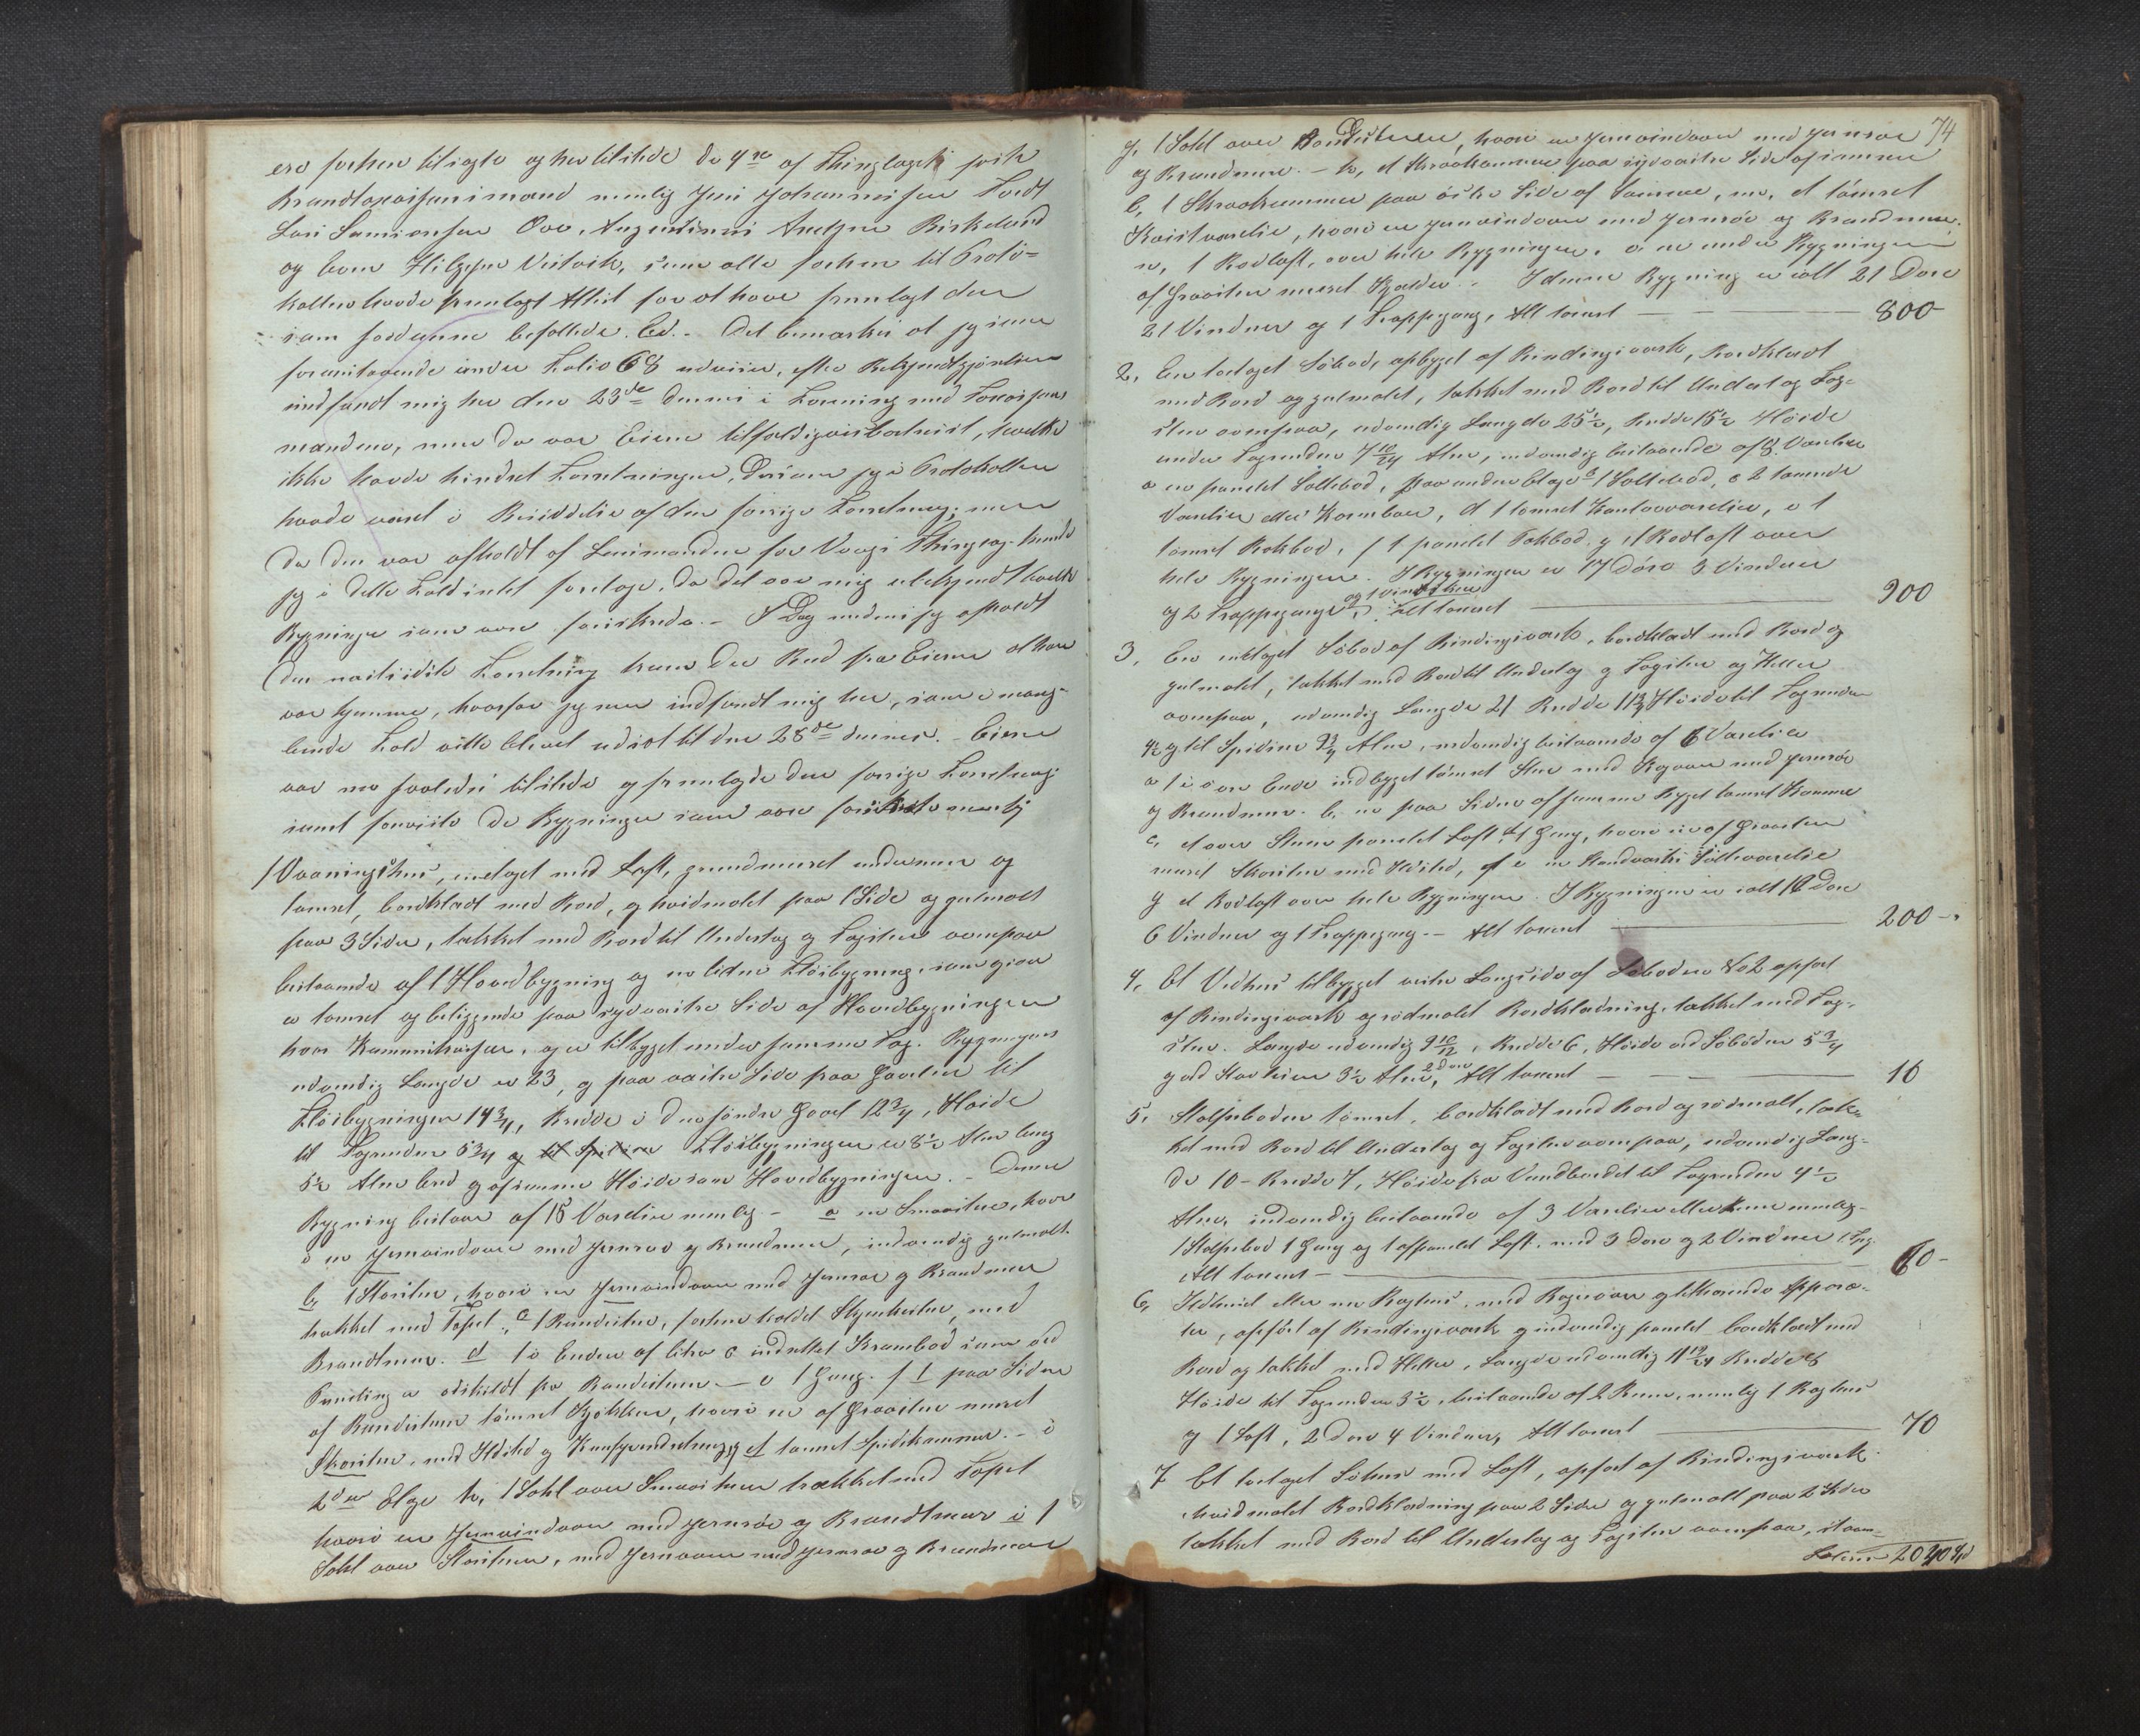 ere forhen tilsagte og her tilstede de 4re af Thinglagets faste
Brandtaxationsmænd nemlig Jens Johannessen Tordt
Lars Simonsen Ove, Augustinus Andersen Birkeland
og Helgesen Vestvik, som alle forhen til Proto-
kollen havde fremlagt Attest for at have fremlagt den
som saadanne befallede Ed. - Det bemærkes at jeg som
foranstaaende under Folio 68 udviser, efter Bekjendtgjørelsen
indfandt mig her den 23de dennes i Forening med Taxations
mændene, men da var Eieren tilfældigviis bortreist, hvilket
ikke havde hindret Forretningen, dersom jeg i Protokollen
havde været i Besiddelse af den forrige Forretning; men
da den var afholdt af Lensmanden for Vaags Thinglag kunde
jeg i dette Fald intet foretage, da det var mig ubekjendt hvilke
Bygninger som vare forsikrede. - I Dag medens jeg afholdt
den næstsidste Forretning kom der Bud fra Eieren at han
var hjemme, hvorfor jeg nu indfandt mig her, som i mang-
lende Fald ville blevet udsat til den 28de dennes. - Eieren
var nu saaledes tilstede og fremlagde den forrige Forretning
samt foreviste de Bygninger som vare forsikrede nemlig
1 Vaaningshus, etaget med Loft, grundmuret under og
tømret, bordklædt med Bord, og hvidmalet paa 1 Side og guulmalt
paa 3 Sider, tækket med Bord til Underlag og Tagsteen ovenpaa
bestaaende af 1 Hovedbygning og en liden Fløibygning, som
er tømret og beliggende paa sydvestre Side af Hovedbygningen
hvor, og er tilbygget under samme Tag. Bygningens
udvendig Længde er 23, og paa vestre Side fra Gavlen til
Fløibygningen 14 3/4, Bredde i den søndre Gavel 12 3/4, Høide
til Tagrenden 5 3/4 og til Spidsen Fløibygningen er 8 1/2 Alen lang
5 1/2 Alen bred og af samme Høide som Hovedbygningen. - Denne
Bygning bestaar af 15 Værelser nemlig - a en Smaastue, hvor
i en Jernvindovn med Jernrør og Brandmuur, indvendig guulmalt.
b, 1 Storstue, hvori en Jernvindovn med Jernrør og Brandmuur
trækket med Tapet., c 1 Bondestue, forhen kaldet Skjenkestue, med
Brandmuur. d 1 i Enden af litra c indrettet Krambod som ved
Paneling er adskildt fra Bondestuen - e 1 Gang. f 1 paa Siden
af Bondestuen tømret Kjøkken, hvori en af Graasteen muret
Skorsteen, med Ildsted og g et tømret Spiskammer. - i
2den Etage h, 1 Sahl over Smaastuen trækket med Tapet
hvori en Jernvindovn med Jernrør og Brandtmuur i 1
Sahl over Storstuen, med Jernovn med Jernrør og Brandmuur
74
j, 1 Sahl over Bondestuen, hvori en Jernvindovn med Jernrør
og Brandmuur. - k, et Skraakammer paa sydvestre Side af samme
l, 1 Skraakammer paa østre Side af samme, m, et tømret
Kvistværelse, hvori en Jernvindovn med Jernrør og Brandmuur.
n, 1 Rodloft, over hele Bygningen. o en under Bygningen
af Graasteen muret Kjælder. - I denne Bygning er ialt 21 Døre
21 Vinduer og 1 Trappegang, Alt taxeret — — — 800-
2, En toetaget Søbod, opbygget af Bindingsværk, Bordklædt
med Bord og guulmalet, tækket med Bord til Underlag Tag-
steen ovenpaa, udvendig Længde 25 1/2, Bredde 15 1/2 Høide
under Tagrenden 7 10/24 Alen, indvendig bestaaende af 8 Værelser
a en panelet Saltbod, paa anden Etage b 1 Saltebod, c 2 tømrede
Værelser eller Kornboer, d 1 tømret Kontorværelse, e 1
tømret Rokbod, f 1 panelet Fokbod. g et Rodloft over
hele Bygningen. I Bygningen er 17 Døre 3 Vinduer
og 2 Trappegange og 1 vindskue, Alt taxeret — 900
3, En etaget Søbod af Bindingsværk, bordklædt med Bord og
guulmalet, tækket med Bord til Underlag og Tagsteen og Heller
ovenpaa, udvendig Længde 21 Bredde 11 3/4 Høide til Tagrenden
4 1/2 og til Spidsen 9 3/4 Alen, indvendig bestaaende af 6 Værelser
a 1 i øvre Ende indbygget tømret Stue med Bagovn med Jernrør
og Brandmuur. b, en paa Siden af samme bygget tømret Kammer
c, et over Stuen panelet Loft, d 1 Gang, hvori en af Graasteen
muret Skorsteen med Ildsted, e en Standværks Salteværelse
g et Rodloft over hele Bygningen. I Bygningen er ialt 12 Døre
6 Vinduer og 1 Trappegang - Alt taxeret — 200-
4, Et Vedhus tilbygget vestre Langside af Søboden No 2 opført
af Bindingsværk og rødmalet Bordklædning, tækket med Tag-
steen. Længde udvendig 9 10/12, Bredde 6, Høide ved Søboden 5 3/4
og ved 3 1/2 Alen, 2 Døre Alt taxeret — — — 10
5, Stolpeboden tømret, bordklædt med bord og rødmalt, tæk-
ket med Bord til Underlag og Tagsteen ovenpaa, udvendig Læng-
de 10 - Bredde 7, Høide fra Vandbordet til Tagrenden 4 1/2
Alen, indvendig bestaaende af 3 Værelser eller Rum nemlig -
1 Stolpebod 1 Gang og 1 afpanelet Loft. med 3 Døre og 2 Vinduer
Alt taxeret — 60-
6, Ildhuus eller en Baghus, med Bagerovn og tilhørende Appara-
ter, opført af Bindingsværk og indvendig panelet bordklædt med
Bord og tækket med Heller, Længde udvendig 11 19/24 Bredde 8
Høide til Tagrenden 3 1/2, bestaaende af 2 Rum, nemlig 1 Baghus
og 1 Loft, 2 Døre 4 Vinduer, Alt taxeret — 70
7 Et toetaget Søhus med Loft, opført af Bindingsværk
hvidmalet Bordklædning paa 2 Sider og guulmalt paa 2 Sider
tækket med Bord til Underlag og Tagsteen ovenpaa,
Latus 2040 Spd